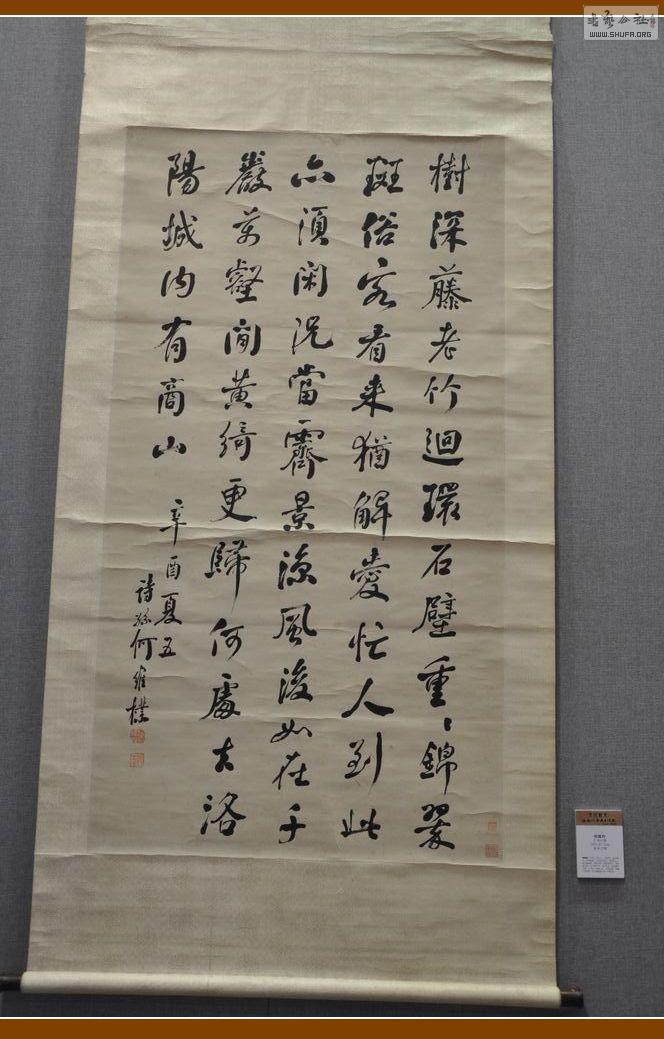 樹深藤老竹迴環石壁重〻錦翠
斑俗客看来猶解愛忙人到此
亦須閑況當霽景涼風後如在千
巖萬壑間黄綺更歸何處去洛
陽城内有商山
辛酉夏五
詩孫何維樸
书艺公社
WWW.SHUFA.ORG